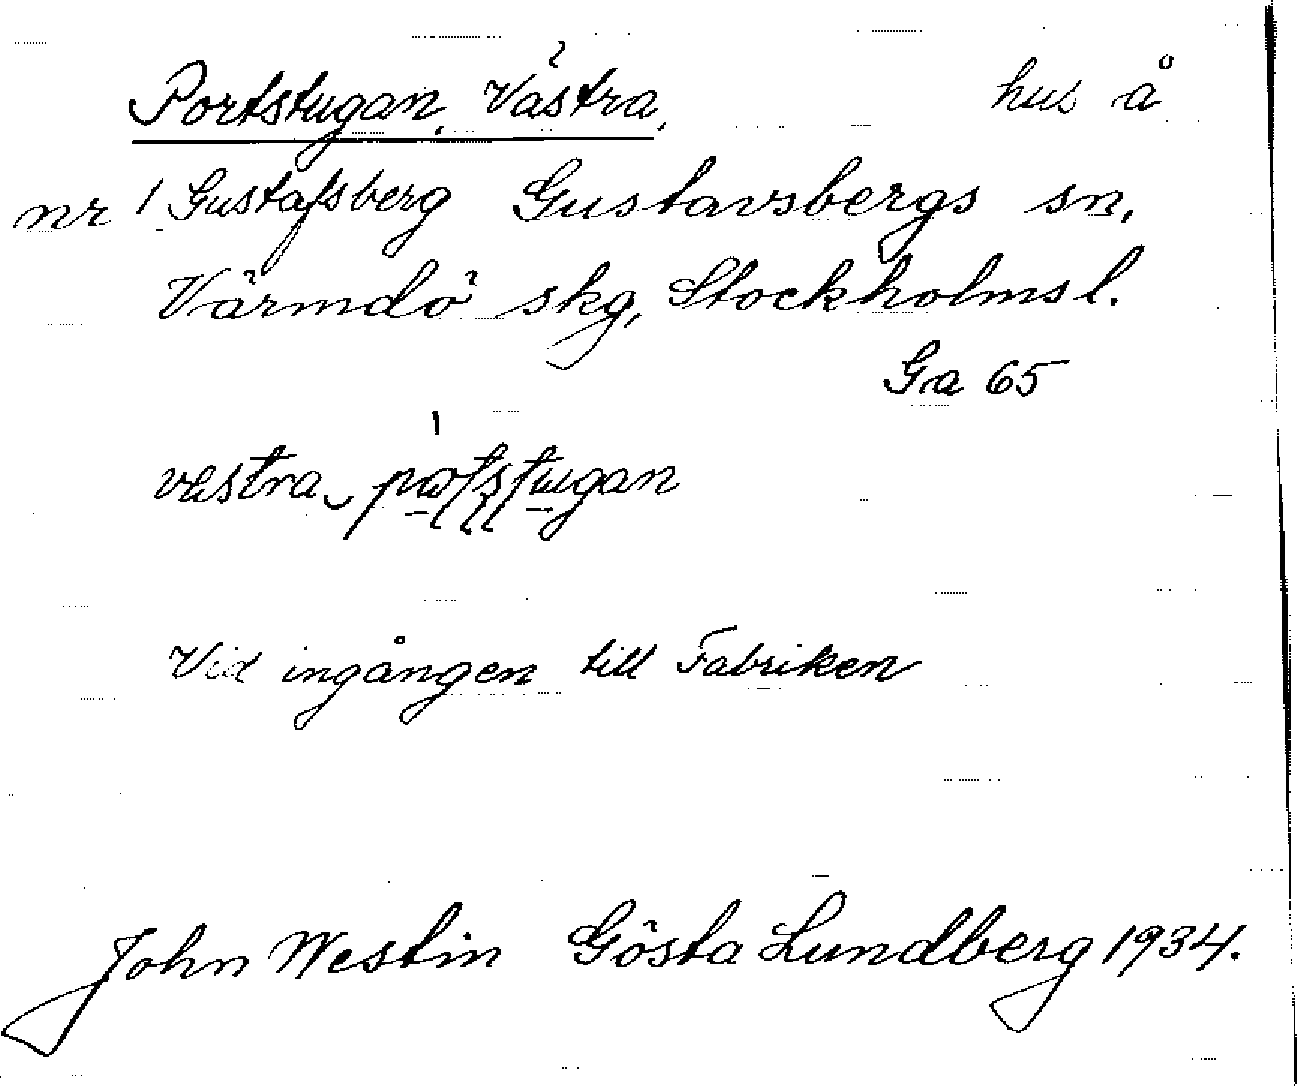 Portstugan, Västra, hus å
nr 1 Gustafsberg Gustavsbergs sn,
Värmdö skg, Stockholms l.
Ga 65
västra
Vid ingången till Fabriken
John Westin Gösta Lundberg 1934.